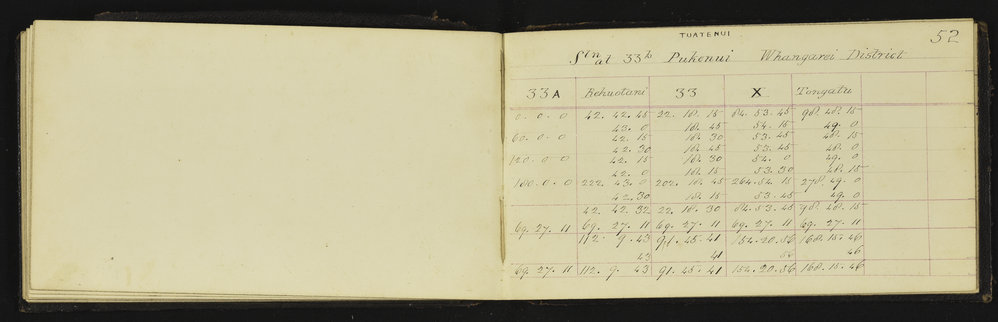 TUATENUI
52
Stn at 33b Pukenui Whangarei District
33A Rehuotani 33 X Tongatu
0. 0. 0 42. 42. 45 22. 18. 15 84. 53. 45 98. 48. 15
43. 0 18. 45 54. 15 49. 0
60. 0. 0 42. 15 18. 30 53. 45 48. 15
42. 30 18. 45 53. 45 48. 0
120. 0. 0 42. 15 18. 30 54. 0 49. 0
42. 0 18. 15 53. 30 48. 15
180. 0. 0 222. 43. 0 202. 18. 45 264. 54. 15 278. 49. 0
42. 30 18. 15 53. 45 49. 0
42. 42. 32 22. 18. 30 84. 53. 45 98. 48. 15
69. 27. 11 69. 27. 11 69. 27. 11 69. 27. 11 69. 27. 11
112. 9. 43 91. 45. 41 154. 20. 56 168. 15. 46
43 41 56 46
69. 27. 11 112. 9. 43 91. 45. 41 154. 20. 56 168. 15. 46